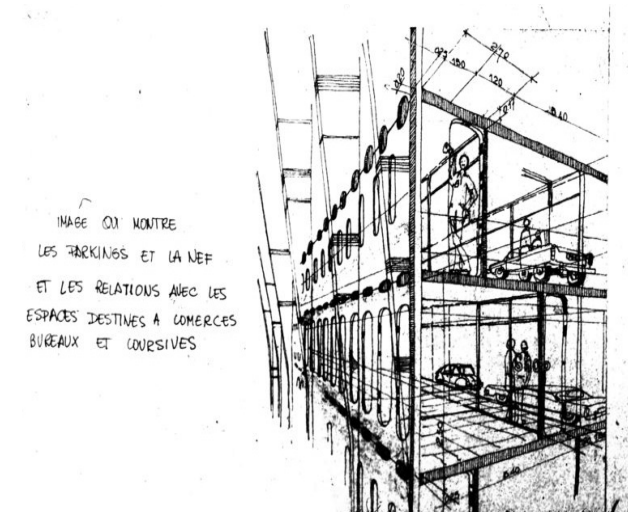 IMAGE QUI MONTRE
LES PARKINGS ET LA NEF
ET LES RELATIONS AVEC LES
ESPACES DESTINES A COMERCES
BUREAUX ET COURSIVES
270
120